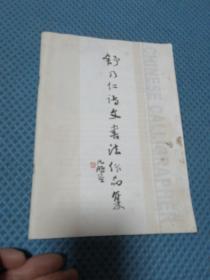 舒乃仁诗文书法作品集
CHINESE CALLIGRAPHER